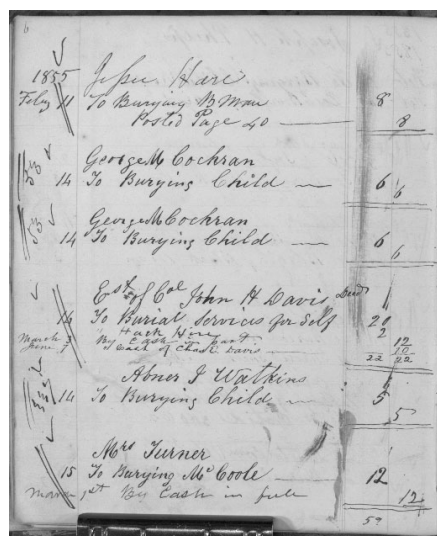 6
1855 Jesse Hare
Feby 11 To Burying B Man 8
Posted Page 40 8
George M Cochran
53 14 To Burying Child 6 6
George M Cochran
53 14 To Burying Child 6 6
Est of Col John H Davis Decd
16 To Burial Services for Self 20
Hack Hire 2
March 3 By Cash in part 12
June 7 " Cash of Chas Davis 10
22 22
Abner J Watkins
14 To Burying Child 5 5
Mrs Turner
15 To Burying Mc Coole 12
March 1st By Cash in full 12
59